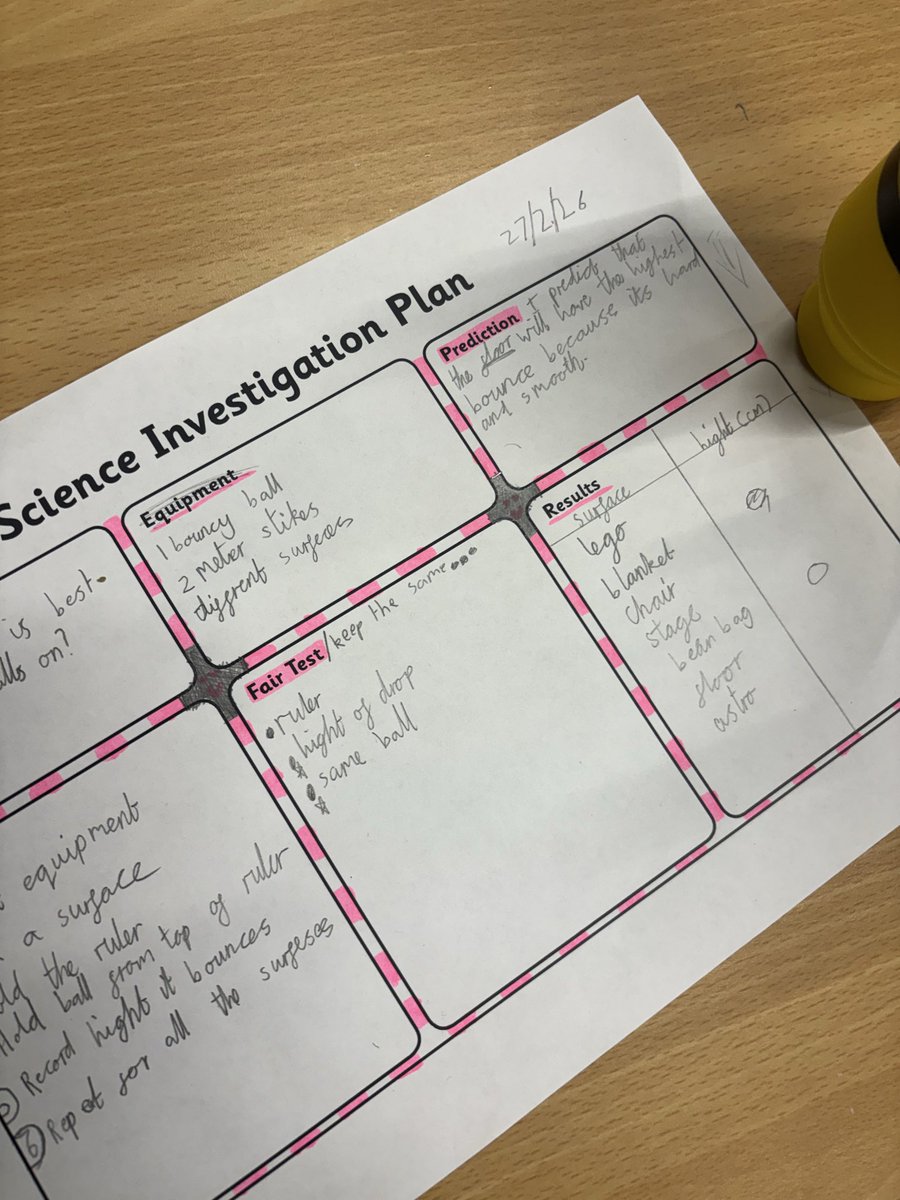 27/2/26
Science Investigation Plan
is best
on?
Equipment
1 bouncy ball
2 meter stikes
different surfeses
Prediction I predict that
the floor will have the highest
bounce because its hard
and smooth.
equipment
a surface
the ruler
Hold ball from top of ruler
Record hight it bounces
6 Repet for all the surfeses
Fair Test/keep the same...
ruler
hight of drop
same ball
Results
surface hight (cm)
lego
blanket
chair
stage
bean bag
floor
astro